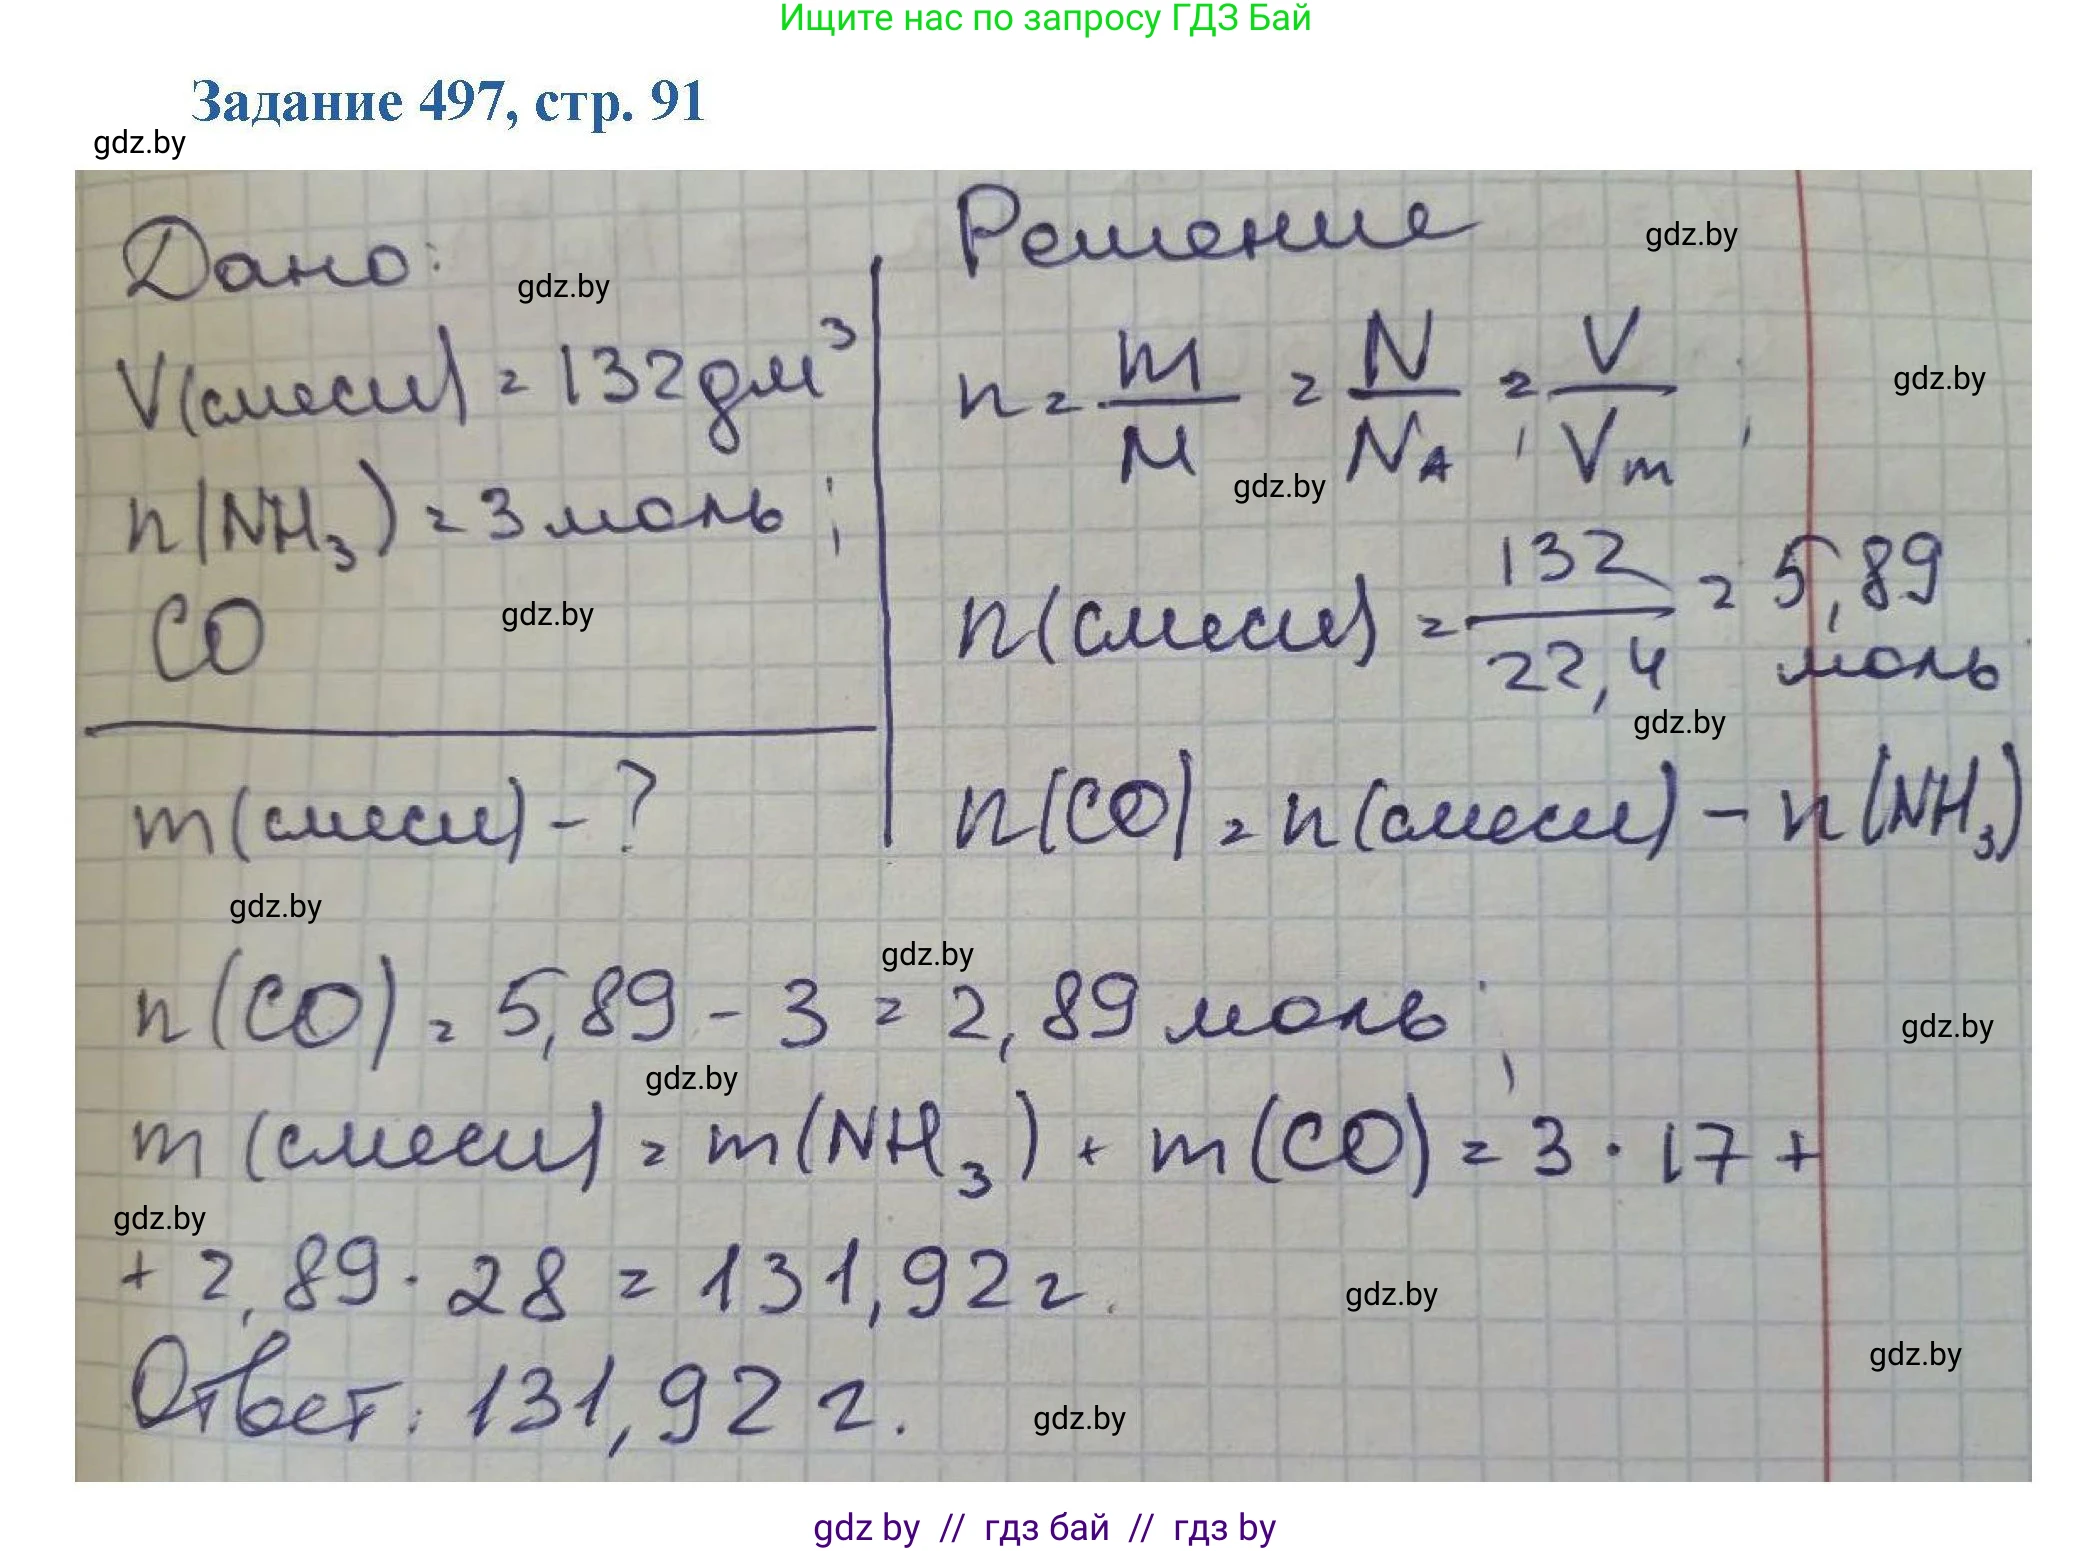 Ищите нас по запросу ГДЗ Бай
Задание 497, стр. 91
gdz.by
Дано:
gdz.by
V(смеси) = 132 дм³
n(NH₃) = 3 моль;
CO
gdz.by
m(смеси) - ?
Решение
gdz.by
n = m/M = N/N_A = V/Vm;
gdz.by
gdz.by
n(смеси) = 132/22,4 = 5,89 моль
gdz.by
n(CO) = n(смеси) - n(NH₃)
gdz.by
gdz.by
n(CO) = 5,89 - 3 = 2,89 моль;
gdz.by
gdz.by
m(смеси) = m(NH₃) + m(CO) = 3 · 17 +
gdz.by
+ 2,89 · 28 = 131,92 г.
gdz.by
gdz.by
Ответ: 131,92 г.
gdz.by
gdz by // гдз бай // гдз by